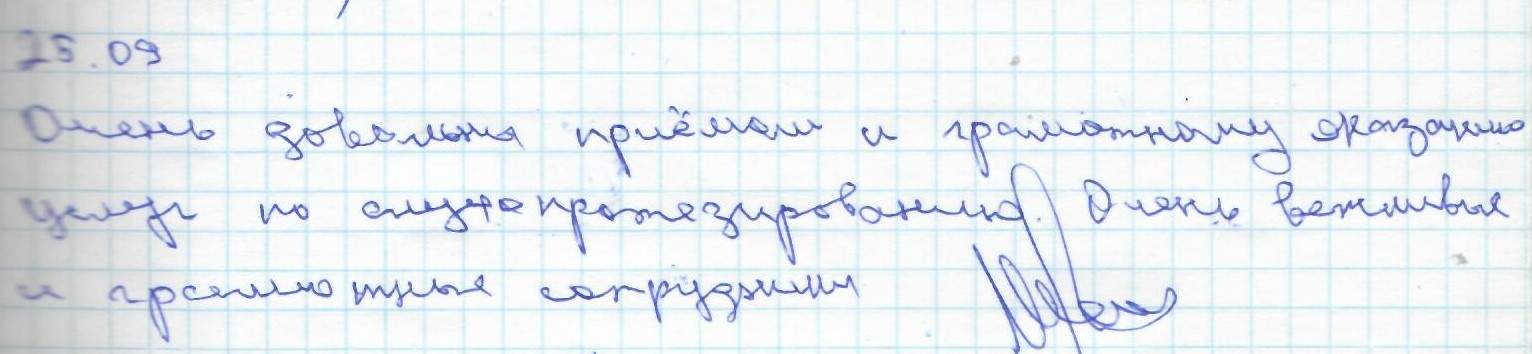 25.09
Очень довольна приёмом и грамотному оказанию
услуг по слухопротезированию. Очень вежливые
и грамотные сотрудники